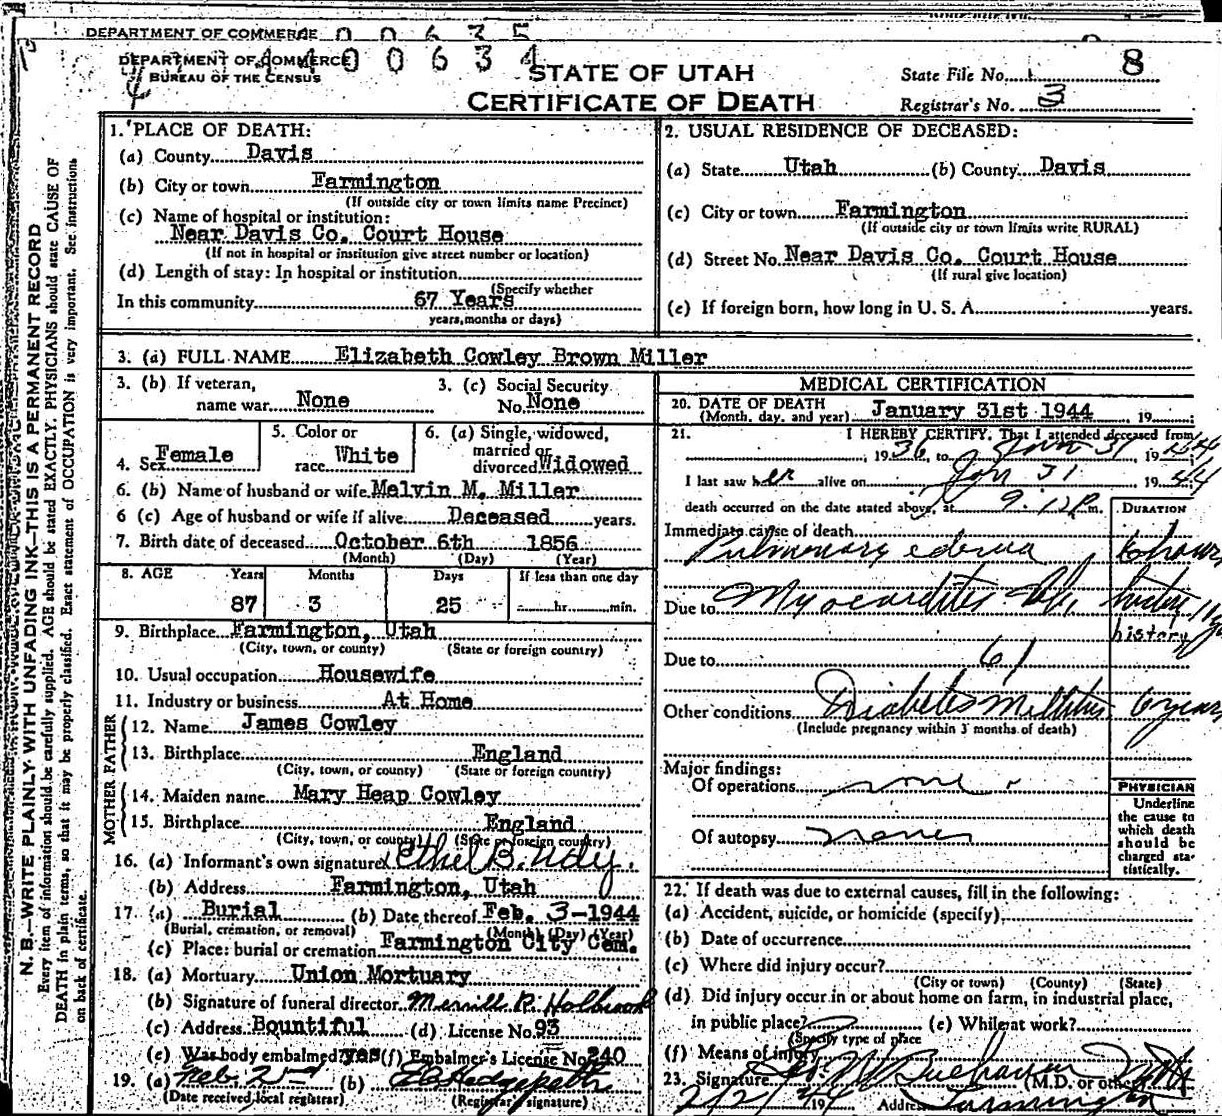 DEPARTMENT OF COMMERCE 00635
DEPARTMENT OF COMMERCE 00634
BUREAU OF THE CENSUS
STATE OF UTAH
CERTIFICATE OF DEATH
State File No. 8
Registrar's No. 3
N. B.—WRITE PLAINLY WITH UNFADING INK—THIS IS A PERMANENT RECORD
Every item of information should be carefully supplied. AGE should be stated EXACTLY. PHYSICIANS should state CAUSE OF
DEATH in plain terms, so that it may be properly classified. Exact statement of OCCUPATION is very important. See instructions
on back of certificate.
1. PLACE OF DEATH:
(a) County Davis
(b) City or town Farmington
(If outside city or town limits name Precinct)
(c) Name of hospital or institution:
Near Davis Co. Court House
(If not in hospital or institution give street number or location)
(d) Length of stay: In hospital or institution
(Specify whether
In this community 67 Years
years, months or days)
2. USUAL RESIDENCE OF DECEASED:
(a) State Utah (b) County Davis
(c) City or town Farmington
(If outside city or town limits write RURAL)
(d) Street No. Near Davis Co. Court House
(If rural give location)
(e) If foreign born, how long in U. S. A. years.
3. (a) FULL NAME Elizabeth Cowley Brown Miller
3. (b) If veteran, name war None
3. (c) Social Security No. None
4. Sex Female
5. Color or race White
6. (a) Single, widowed, married or divorced Widowed
6. (b) Name of husband or wife Melvin M. Miller
6 (c) Age of husband or wife if alive Deceased years.
7. Birth date of deceased October 6th 1856
(Month) (Day) (Year)
8. AGE Years Months Days If less than one day
87 3 25 hr. min.
9. Birthplace Farmington, Utah
(City, town, or county) (State or foreign country)
10. Usual occupation Housewife
11. Industry or business At Home
FATHER
12. Name James Cowley
13. Birthplace England
(City, town, or county) (State or foreign country)
MOTHER
14. Maiden name Mary Heap Cowley
15. Birthplace England
(City, town, or county) (State or foreign country)
16. (a) Informant's own signature Ethel B. Udy.
(b) Address Farmington, Utah
17. (a) Burial (b) Date thereof Feb. 3-1944
(Burial, cremation, or removal) (Month) (Day) (Year)
(c) Place: burial or cremation Farmington City Cem.
18. (a) Mortuary Union Mortuary
(b) Signature of funeral director Merrill R. Holbrook
(c) Address Bountiful (d) License No. 93
(e) Was body embalmed? yes (f) Embalmer's License No. 240
19. (a) Feb. 2nd (b)
(Date received local registrar) (Registrar's signature)
MEDICAL CERTIFICATION
20. DATE OF DEATH
(Month, day, and year) January 31st 1944, 19
21. I HEREBY CERTIFY, That I attended deceased from
, 1936, to Jan 31, 1944
I last saw her alive on Jan 31 1944
death occurred on the date stated above, at 9:12 P. m.
DURATION
Immediate cause of death
Pulmonary edema 6 hours
Due to Myocarditis
history
Due to 61
Other conditions Diabetes Mellitus 6 years
(Include pregnancy within 3 months of death)
Major findings:
Of operations none
Of autopsy none
PHYSICIAN
Underline
the cause to
which death
should be
charged sta-
tistically.
22. If death was due to external causes, fill in the following:
(a) Accident, suicide, or homicide (specify)
(b) Date of occurrence
(c) Where did injury occur?
(City or town) (County) (State)
(d) Did injury occur in or about home on farm, in industrial place,
in public place? (e) While at work?
(Specify type of place
(f) Means of injury
23. Signature Buchanan (M.D. or other)
2/2/44 19 Address Farmington